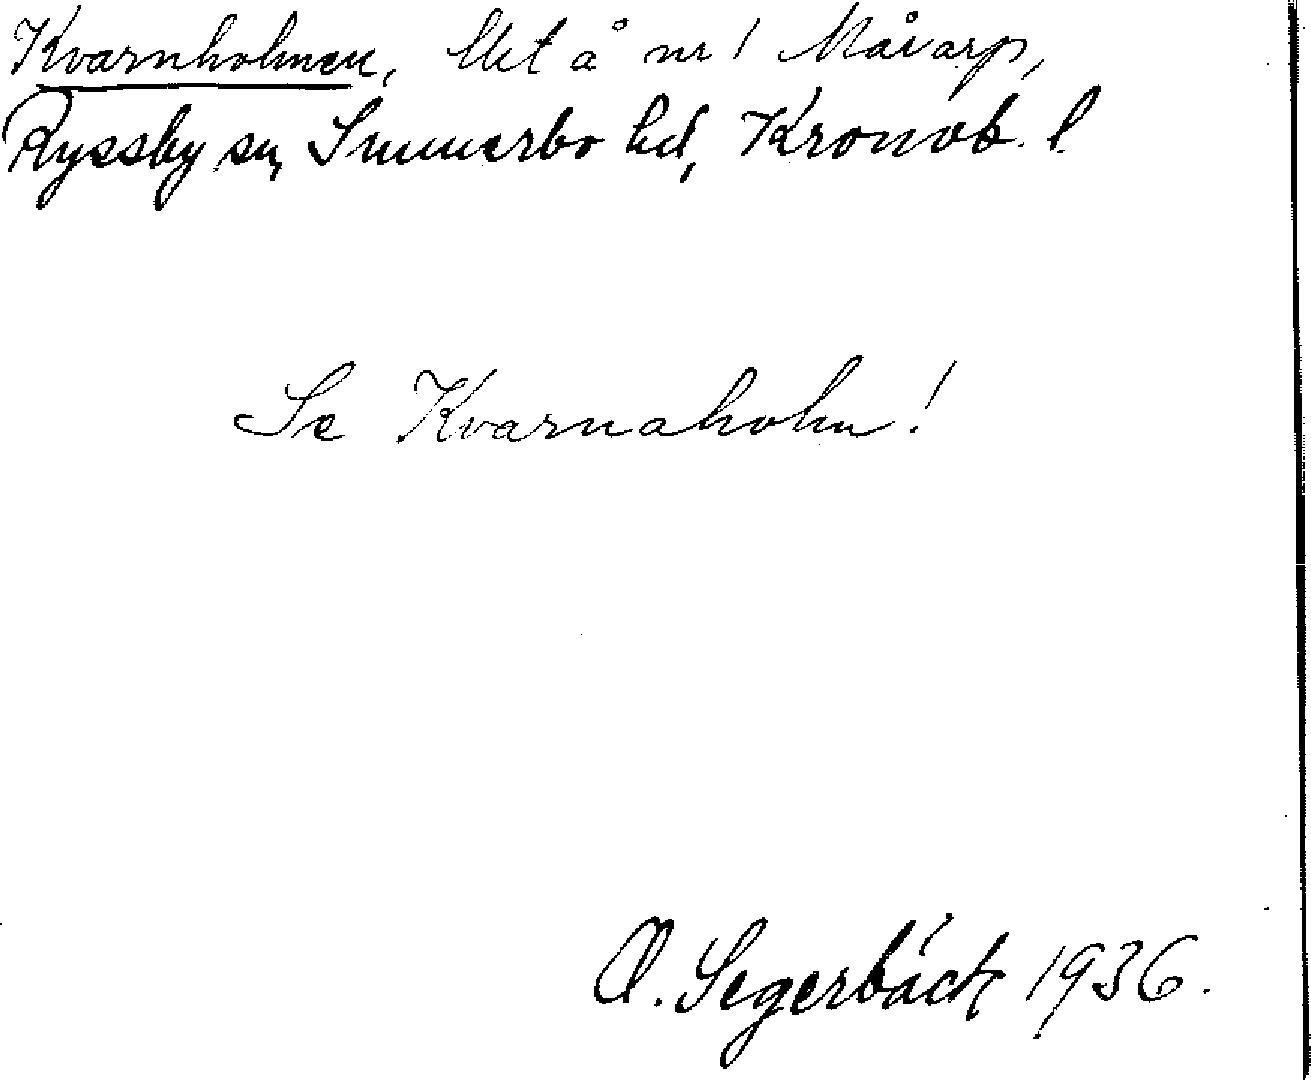 Kvarnholmen, lht å nr 1 Målarp,
Ryssby sn, Sunnerbo hd, Kronob. l.
Se Kvarnaholm!
O. Segerbäck 1936.